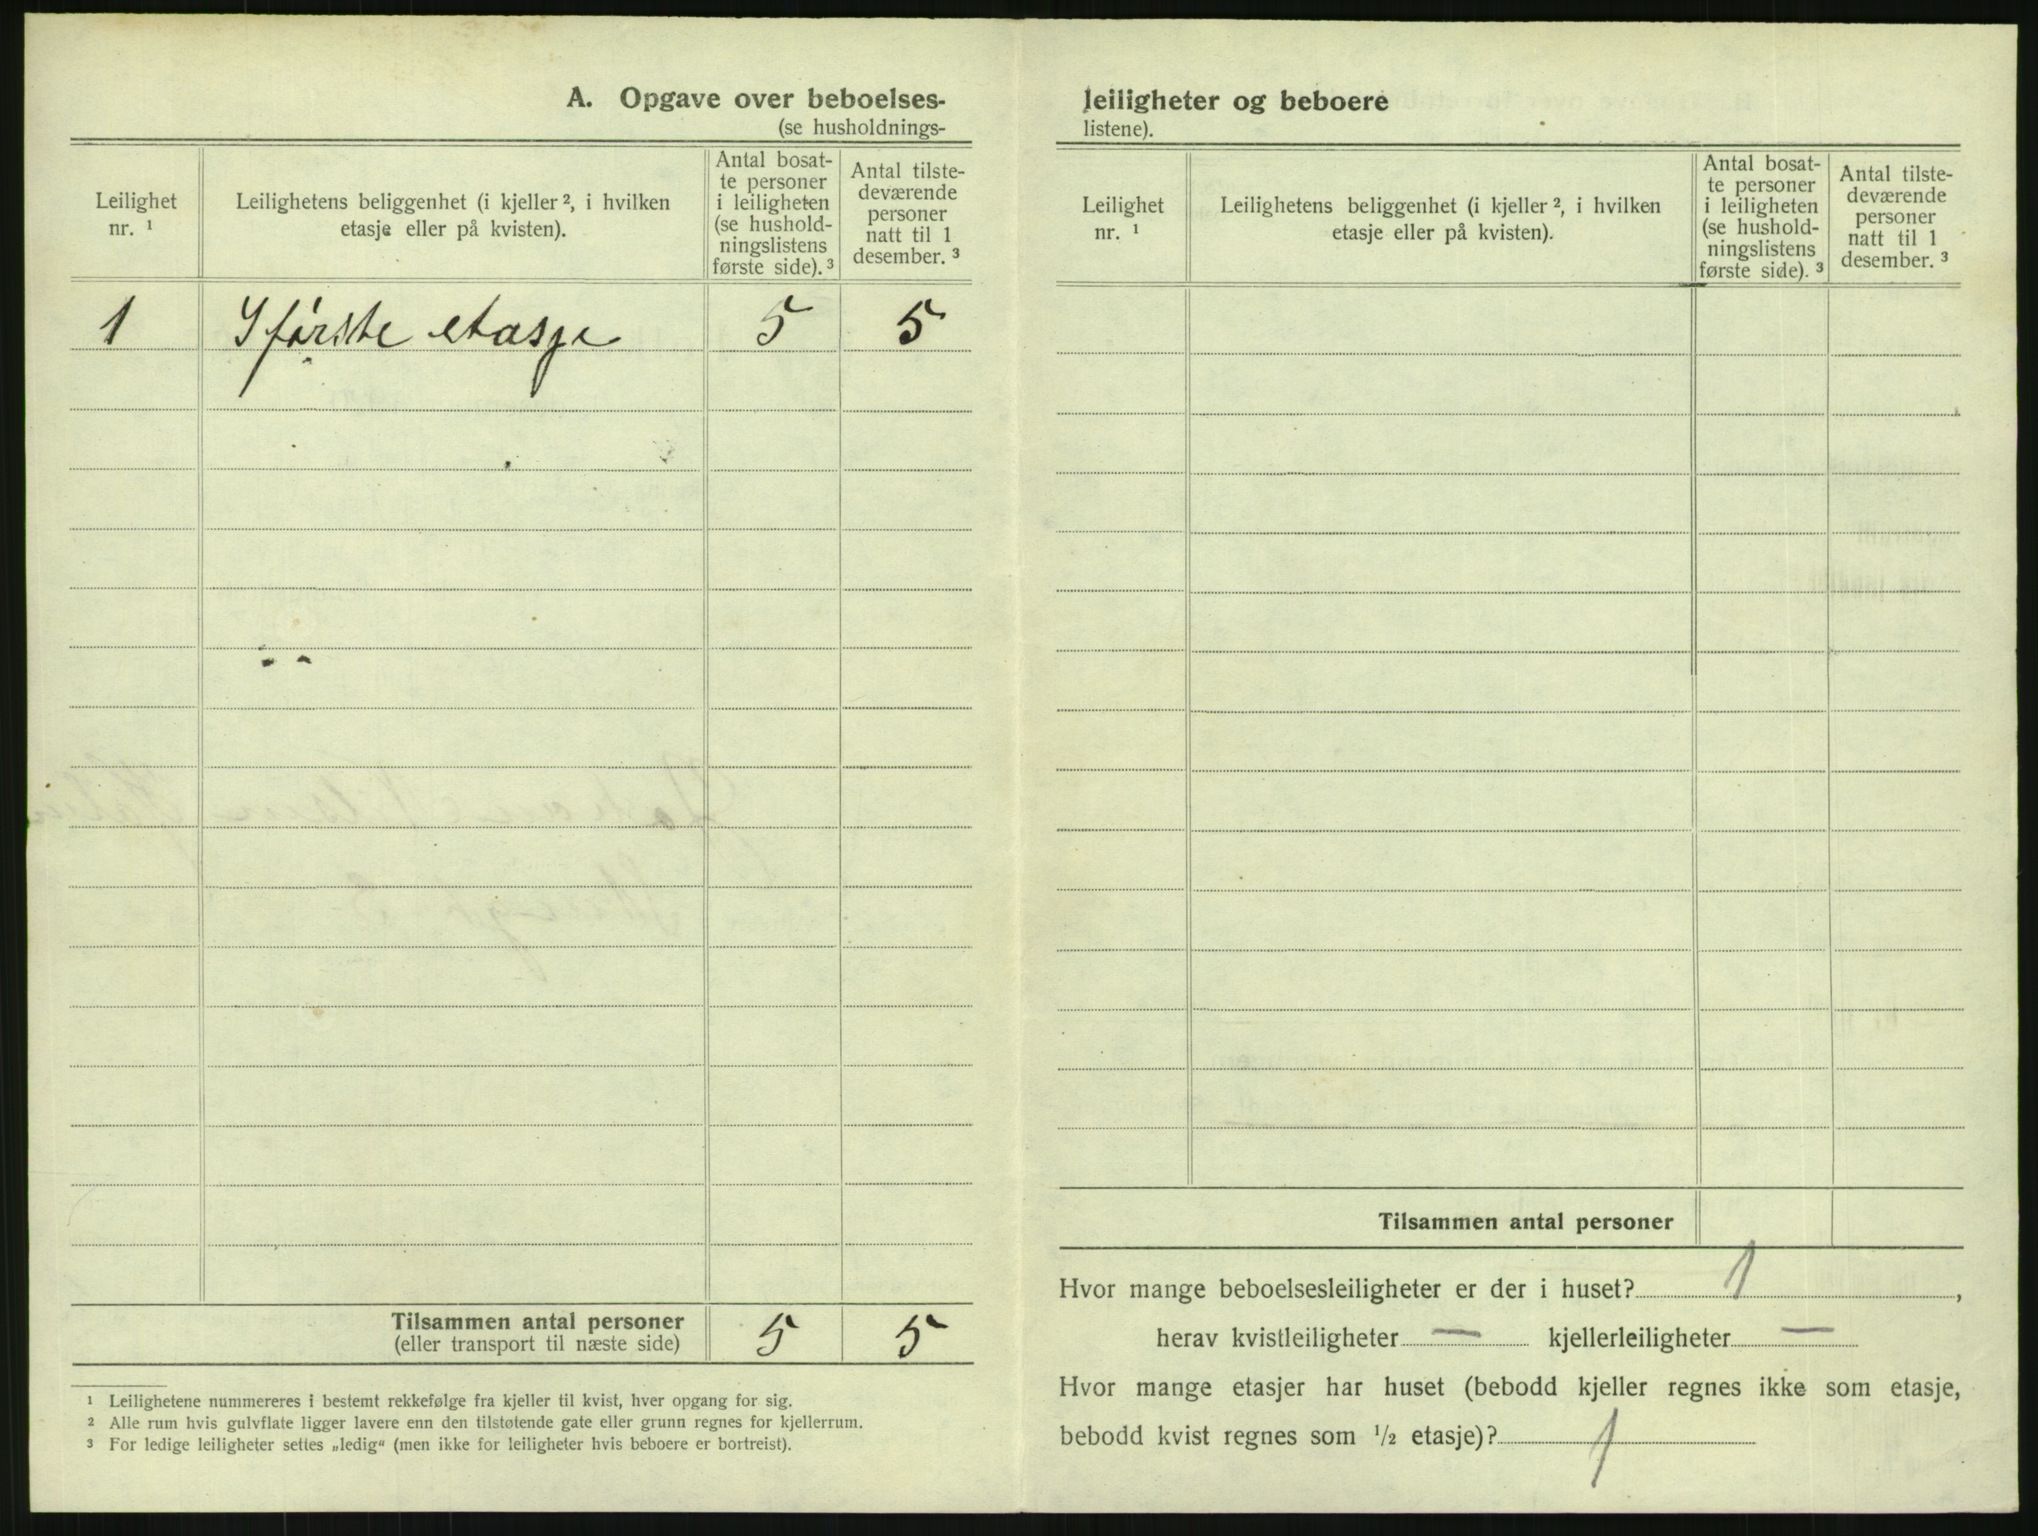 A. Opgave over beboelses-
(se husholdnings-
Leilighet
nr. ¹
Leilighetens beliggenhet (i kjeller ², i hvilken
etasje eller på kvisten).
Antal bosat-
te personer
i leiligheten
(se hushold-
ningslistens
første side). ³
Antal tilste-
deværende
personer
natt til 1
desember. ³
1 I første etasje 5 5
Tilsammen antal personer 5 5
(eller transport til næste side)
¹ Leilighetene nummereres i bestemt rekkefølge fra kjeller til kvist, hver opgang for sig.
² Alle rum hvis gulvflate ligger lavere enn den tilstøtende gate eller grunn regnes for kjellerrum.
³ For ledige leiligheter settes „ledig“ (men ikke for leiligheter hvis beboere er bortreist).
leiligheter og beboere
listene).
Leilighet
nr. ¹
Leilighetens beliggenhet (i kjeller ², i hvilken
etasje eller på kvisten).
Antal bosat-
te personer
i leiligheten
(se hushold-
ningslistens
første side). ³
Antal tilste-
deværende
personer
natt til 1
desember. ³
Tilsammen antal personer
Hvor mange beboelsesleiligheter er der i huset? 1,
herav kvistleiligheter — kjellerleiligheter —
Hvor mange etasjer har huset (bebodd kjeller regnes ikke som etasje,
bebodd kvist regnes som ½ etasje)? 1